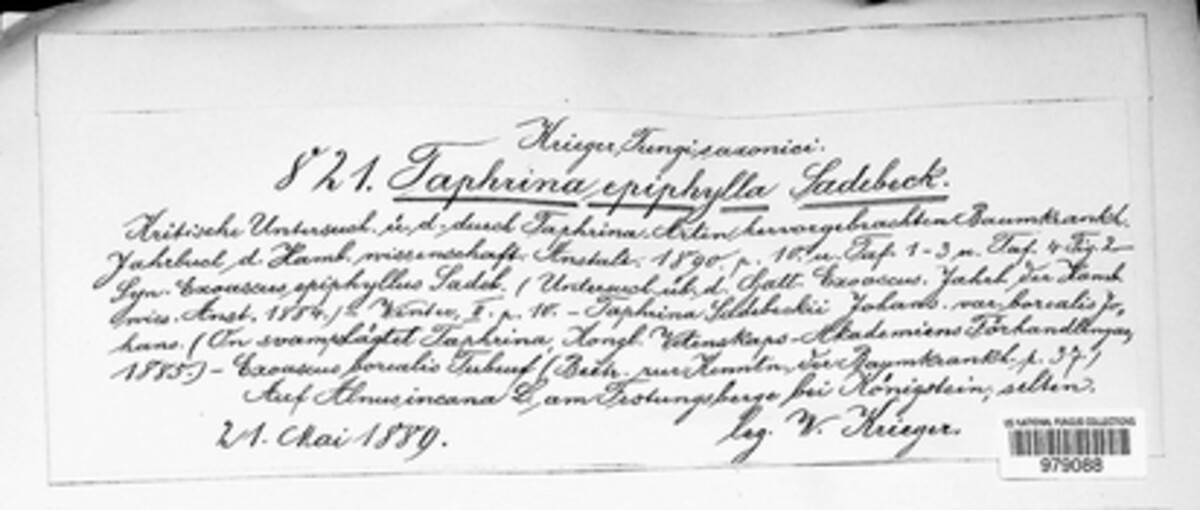 Krieger, Fungi saxonici.
821. Taphrina epiphylla Sadebeck.
Kritische Untersuch. ü. d. durch Taphrina-Arten hervorgebrachten Baumkrankh.
Jahrbuch d. Hamb. wissenschaft. Anstalt. 1890. p. 10. u. Taf. 1-3 u. Taf. 4 Fig. 2
Syn. Exoascus epiphyllus Sadeb. (Untersuch. üb. d. Gatt. Exoascus. Jahrb. der Hamb.
wiss. Anst. 1884.) - Winter, II. p. 10. - Taphrina Sadebeckii Johans. var. borealis Jo-
hans. (On svampslägtet Taphrina, Kongl. Vetenskaps-Akademiens Förhandlingar,
1885.) - Exoascus borealis Tubeuf (Beitr. zur Kenntn. der Baumkrankh. p. 37.)
Auf Alnus incana L., am Festungsberge bei Königstein, selten.
21. Mai 1889.
leg. W. Krieger.
US NATIONAL FUNGUS COLLECTIONS
979088